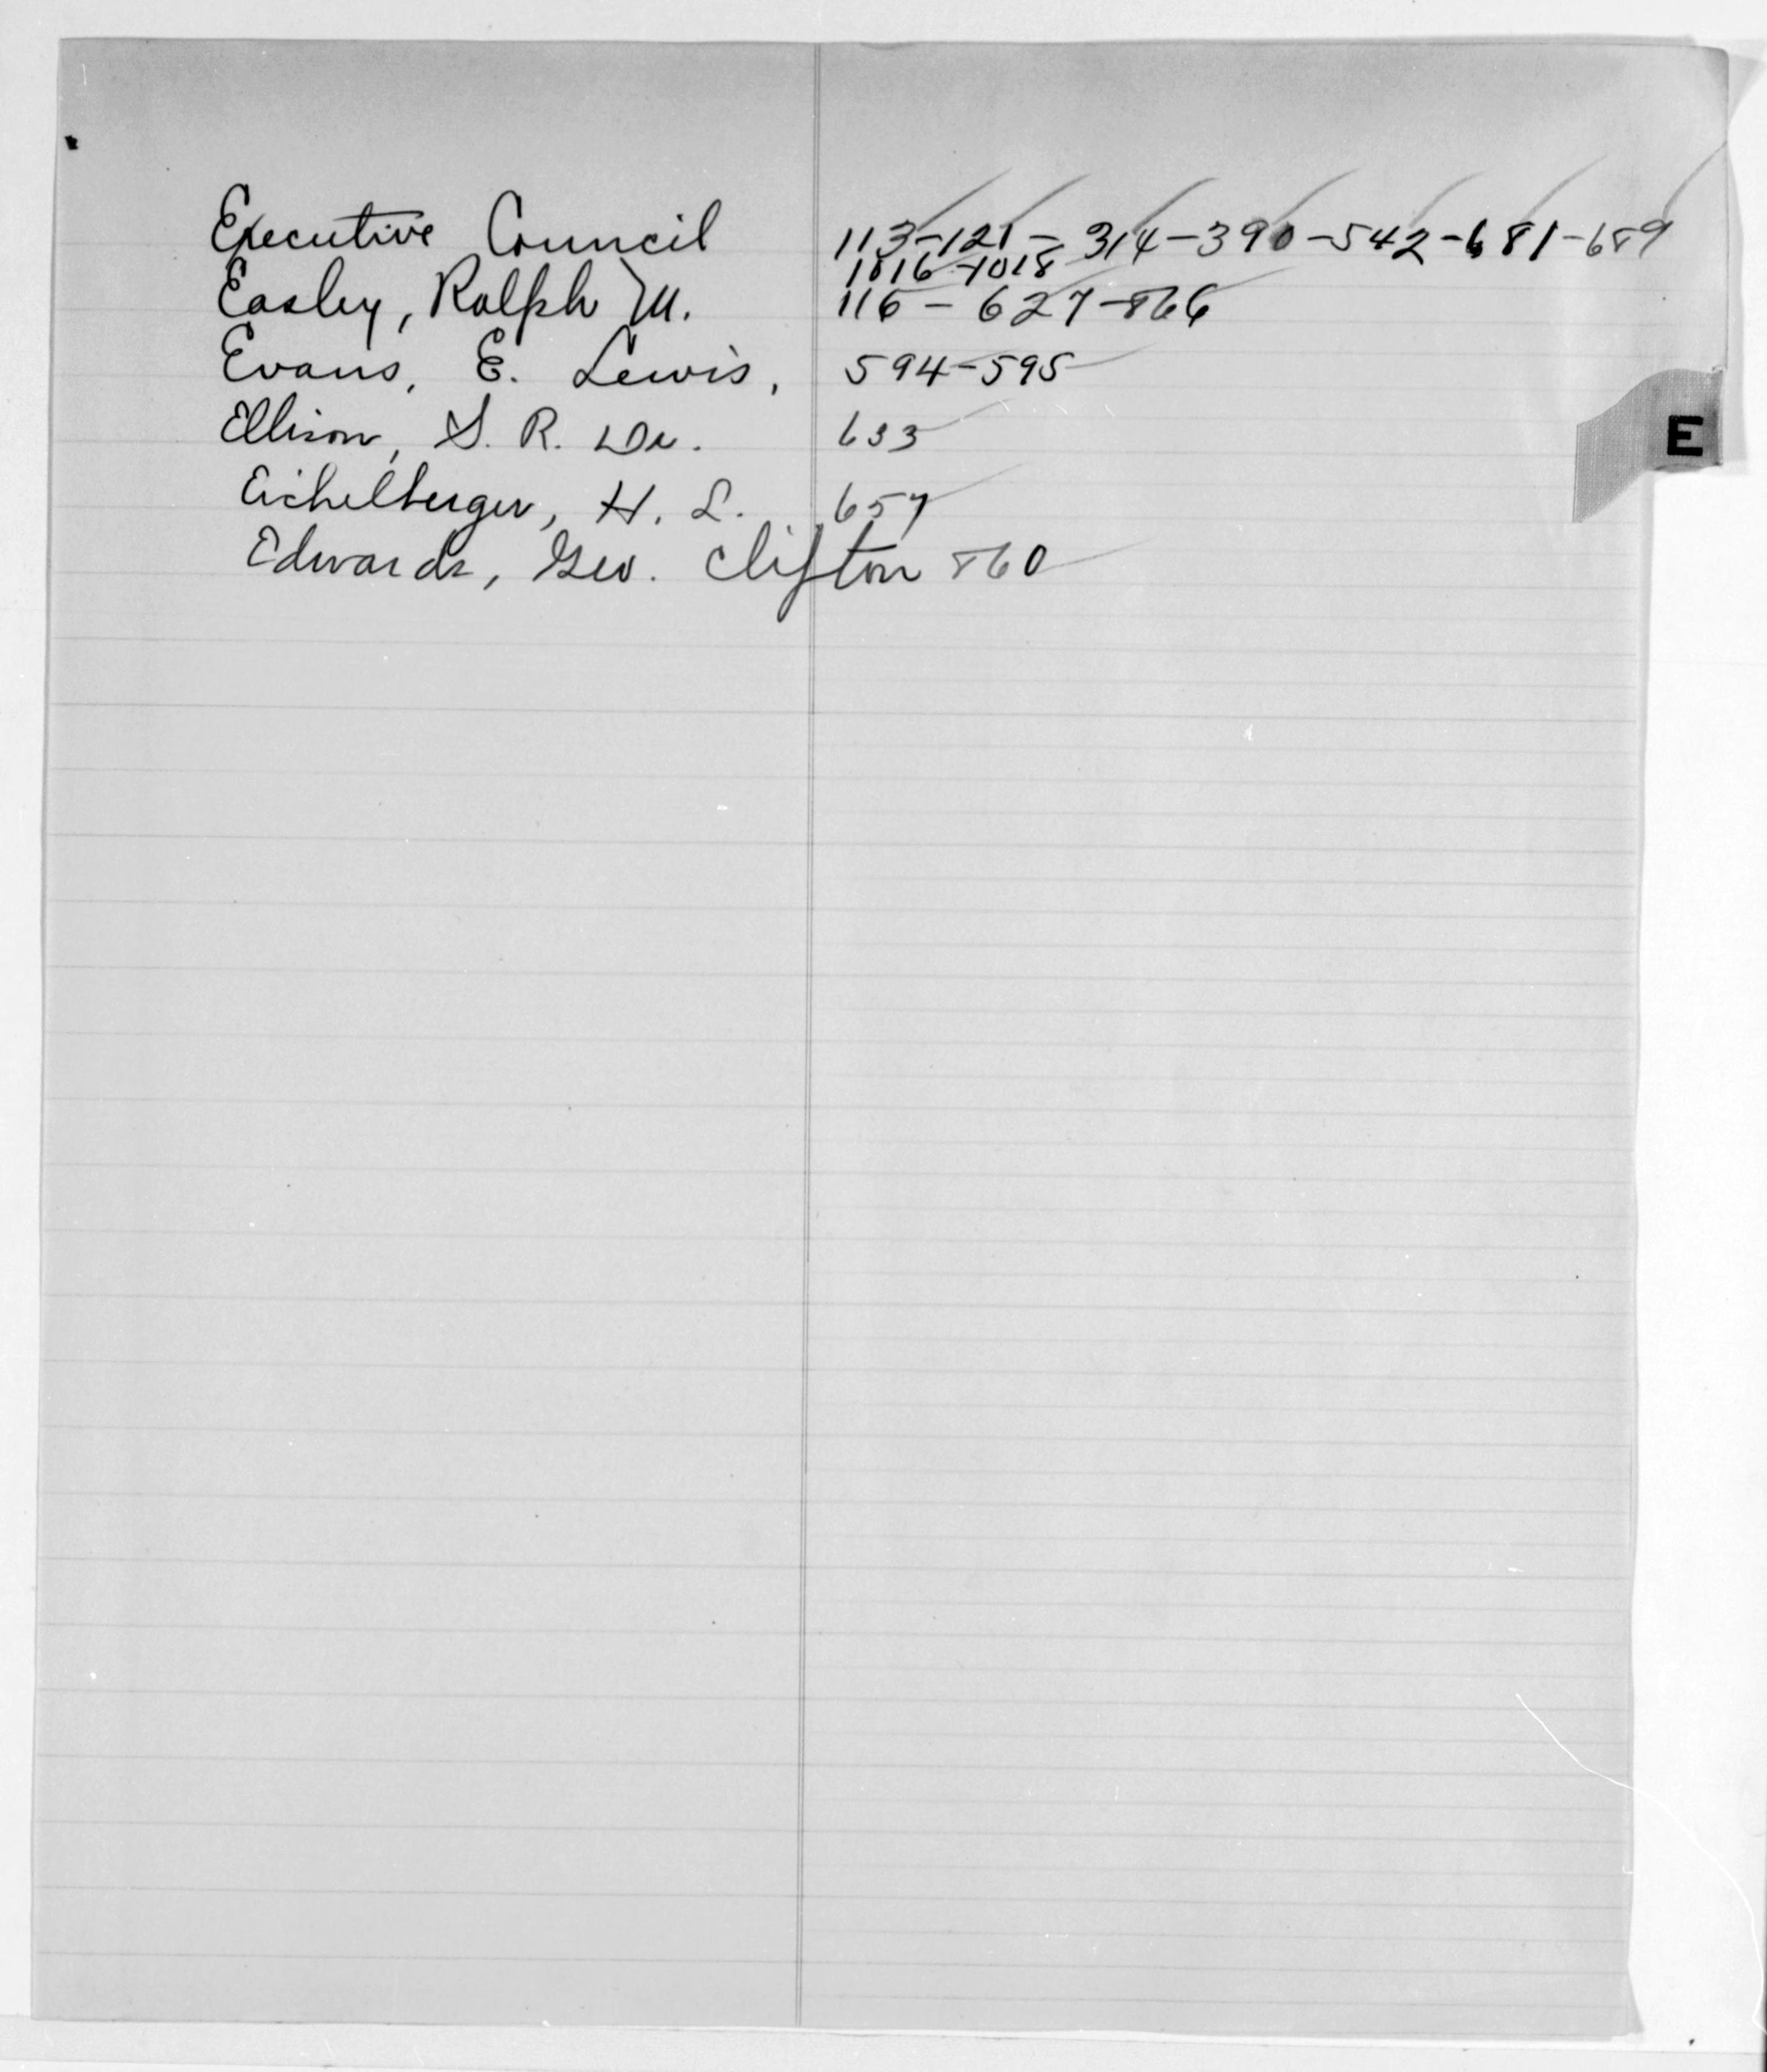 Executive Council 113-121-314-390-542-681-689
1016-1018
Easley, Ralph M. 116-627-866
Evans, E. Lewis, 594-595
Ellison, S. R. Dr. 633
E
Eichelberger, H. L. 657
Edwards, Geo. Clifton 860